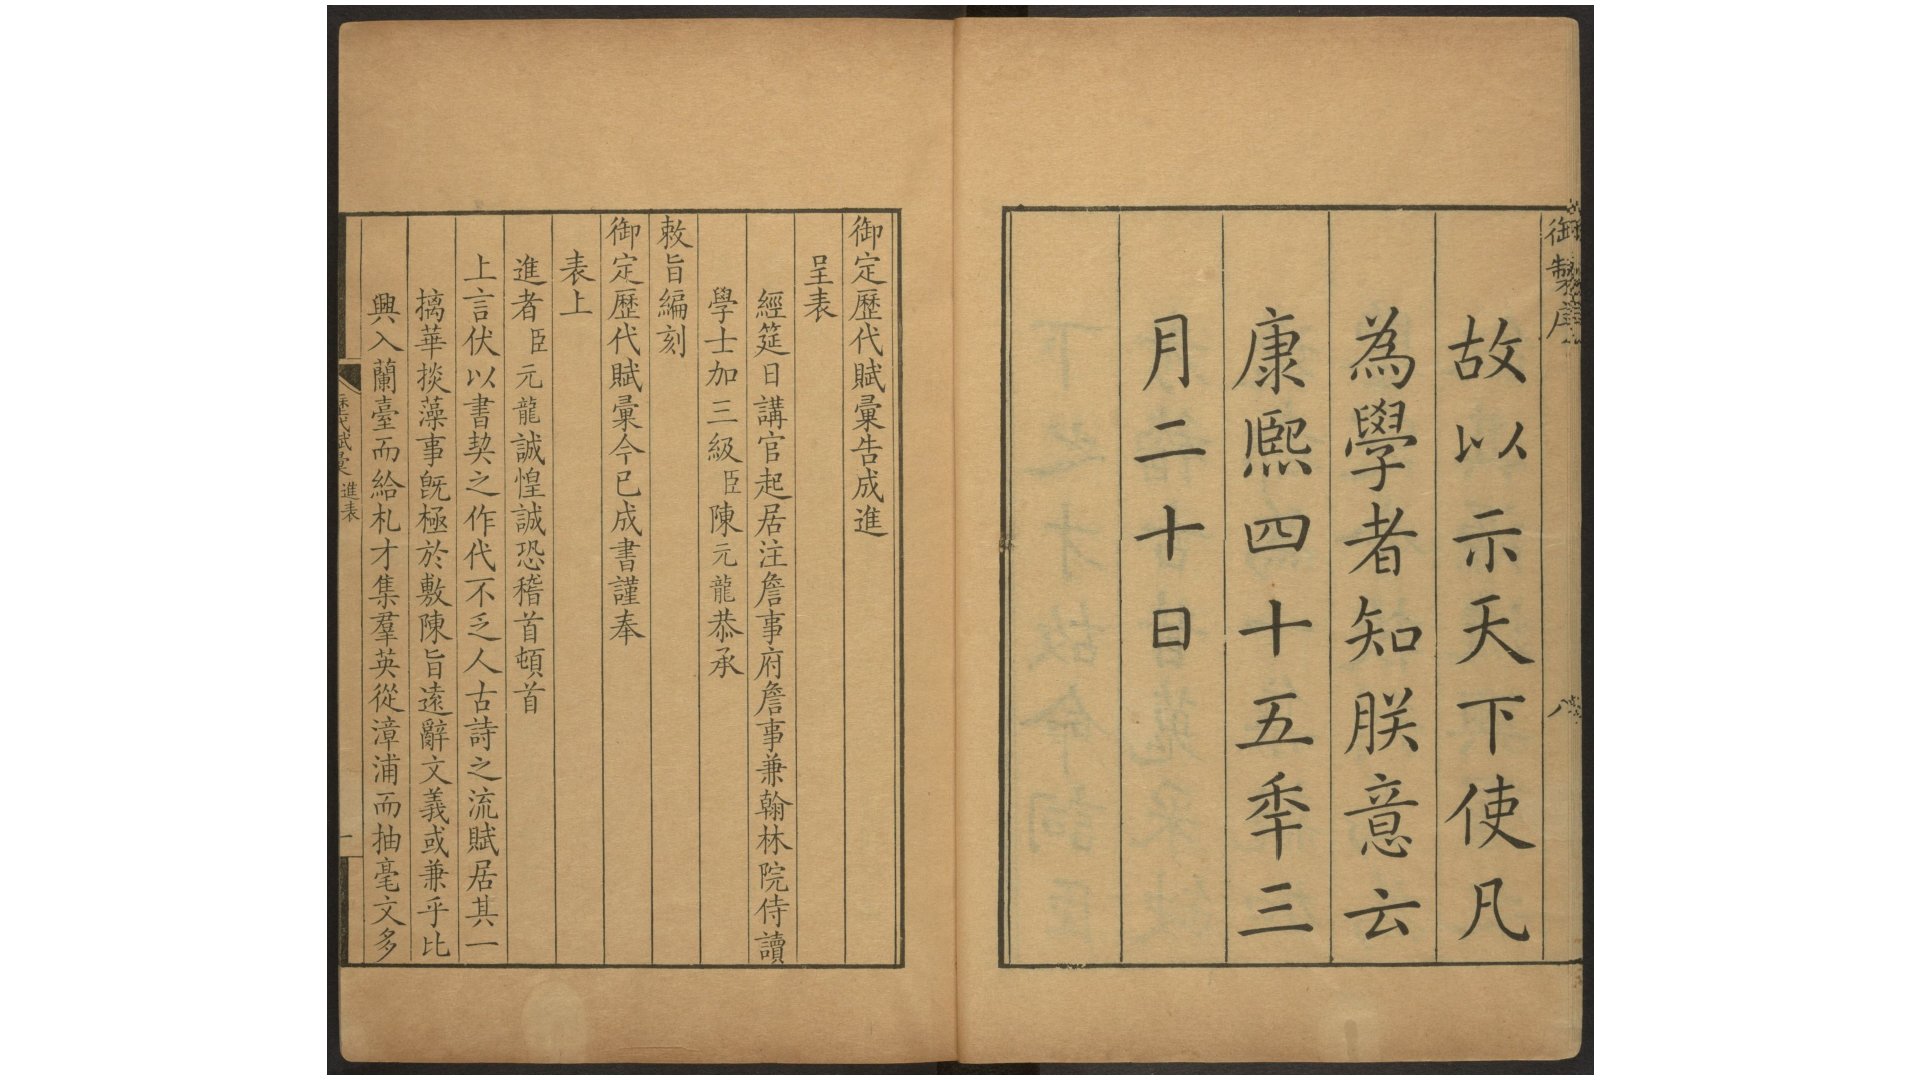 御製序
八
故以示天下使凡
為學者知朕意云
康熈四十五秊三
月二十日
御定歷代賦彙告成進
呈表
經筵日講官起居注詹事府詹事兼翰林院侍讀
學士加三級臣陳元龍恭承
敕旨編刻
御定歷代賦彙今已成書謹奉
表上
進者臣元龍誠惶誠恐稽首頓首
上言伏以書契之作代不乏人古詩之流賦居其一
摛華掞藻事旣極於敷陳旨遠辭文義或兼乎比
興入蘭臺而給札才集羣英從漳浦而抽毫文多
歷代賦彙 進表
一